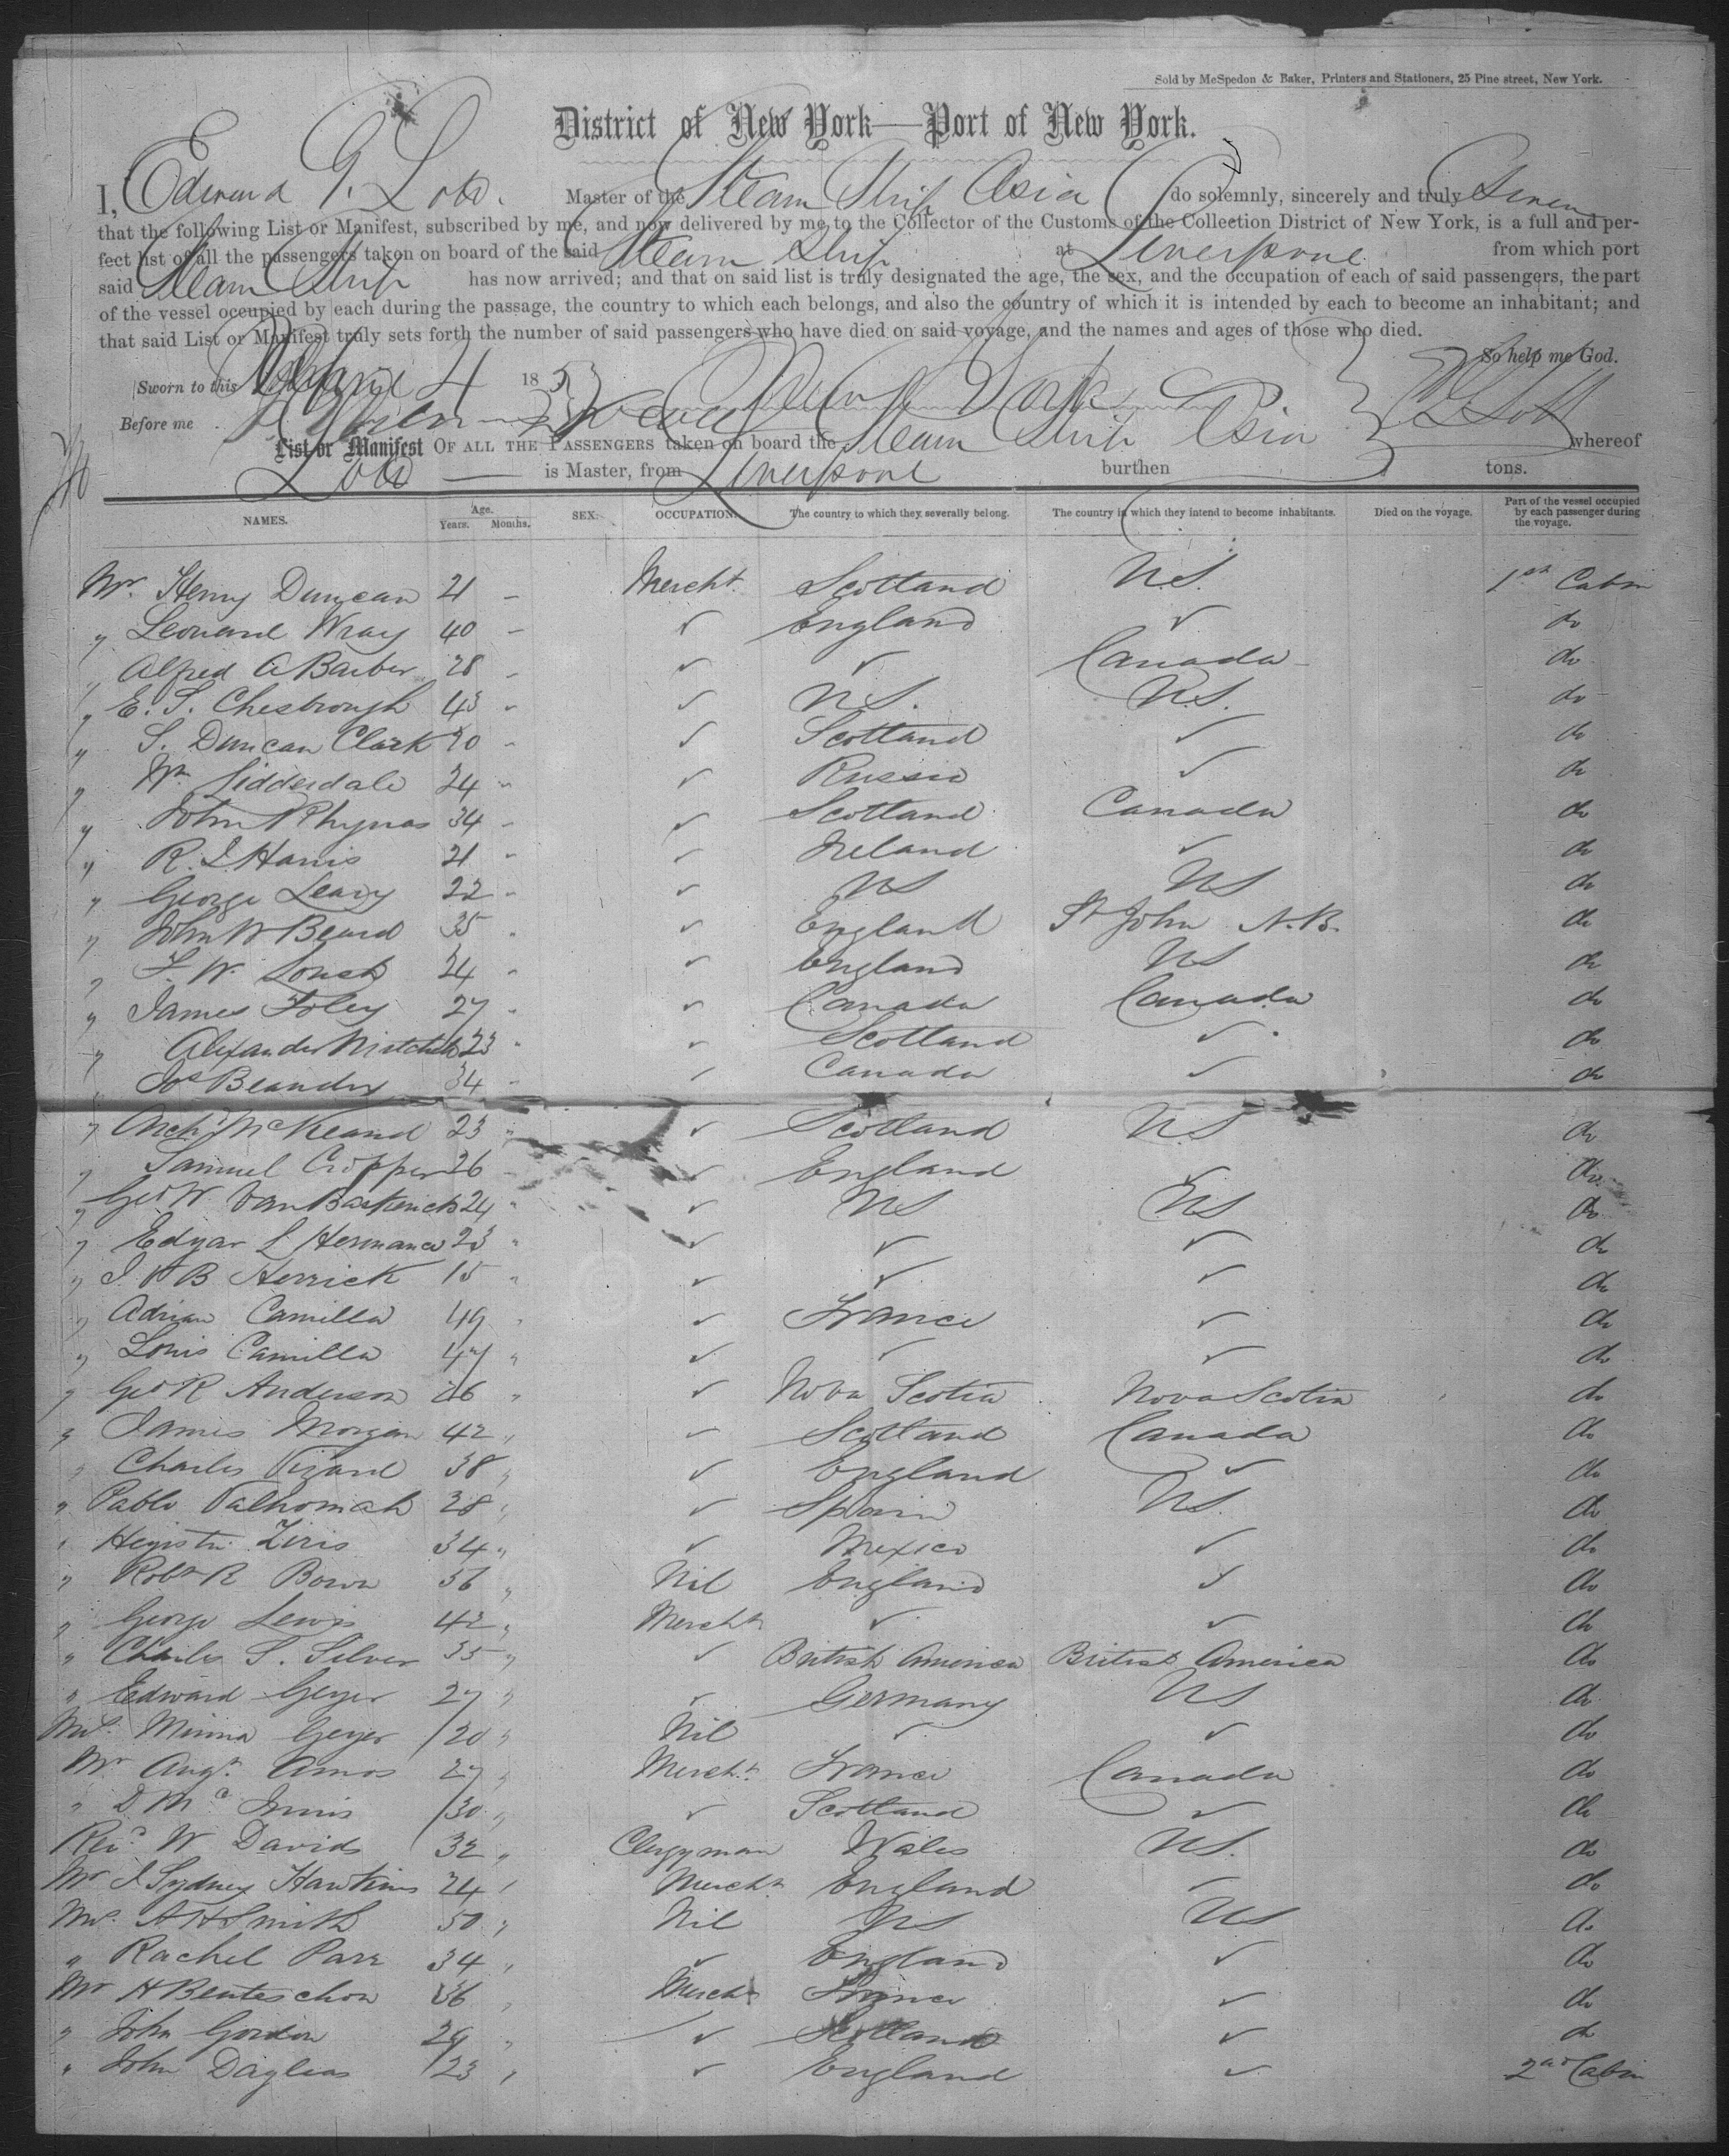 Sold by McSpedon & Baker, Printers and Stationers, 25 Pine street, New York.
District of New York—Port of New York.
I, Edward G. Lott. Master of the Steam Ship Asia do solemnly, sincerely and truly Swear
that the following List or Manifest, subscribed by me, and now delivered by me to the Collector of the Customs of the Collection District of New York, is a full and per-
fect list of all the passengers taken on board of the said Steam Ship at Liverpool from which port
said Steam Ship has now arrived; and that on said list is truly designated the age, the sex, and the occupation of each of said passengers, the part
of the vessel occupied by each during the passage, the country to which each belongs, and also the country of which it is intended by each to become an inhabitant; and
that said List or Manifest truly sets forth the number of said passengers who have died on said voyage, and the names and ages of those who died.
So help me God.
Sworn to this 4 185 New York
Before me E G Lott
List or Manifest OF ALL THE PASSENGERS taken on board the Steam Ship Asia whereof
Lott is Master, from Liverpool burthen tons.
NAMES. Age. Years. Months. SEX. OCCUPATION. The country to which they severally belong. The country in which they intend to become inhabitants. Died on the voyage. Part of the vessel occupied by each passenger during the voyage.
Mr. Henry Duncan 21 – Mercht. Scotland U.S. 1st Cabin
" Leonard Wray 40 – ✓ England ✓ do
" Alfred A Barber 28 – ✓ ✓ Canada do
" E. S. Chesbrough 43 " ✓ U.S. U.S. do
" S. Duncan Clark 20 – ✓ Scotland ✓ do
" Wm Lidderdale 24 " ✓ Russia ✓ do
" John Rhynas 34 – ✓ Scotland Canada do
" R. I. Harris 21 " ✓ Ireland ✓ do
" George Leavy 22 – ✓ US US do
" John W Beard 35 " ✓ England St John N.B. do
" F. W. 24 " ✓ England US do
" James Foley 27 " ✓ Canada Canada do
" Alexander Mitchell 23 " ✓ Scotland ✓ do
" Jos 34 – ✓ Canada ✓ do
" Archd McKeand 23 " ✓ Scotland U.S do
" Samuel Cropper 26 – ✓ England ✓ do
" Geo W. Van Baskerick 24 " ✓ US US do
" Edgar L Hermance 23 " ✓ ✓ ✓ do
" J H B Herrick 15 " ✓ ✓ ✓ do
" Adrian Camilla 49 " ✓ France ✓ do
" Louis Camilla 47 " ✓ ✓ ✓ do
" Geo R Anderson 26 " ✓ Nova Scotia Nova Scotia do
" James Morgan 42 " ✓ Scotland Canada do
" Charles Vizard 38 " ✓ England ✓ do
" Pablo 28 " ✓ Spain US. do
" 34 " ✓ Mexico ✓ do
" Robt R Bown 56 " Nil England ✓ do
" George Lewis 42 " Mercht ✓ ✓ do
" Charles S. Silver 35 " ✓ British America British America do
" Edward Geyer 27 " ✓ Germany US do
Mrs. Minna Geyer 20 " Nil ✓ ✓ do
Mr Augt. Amos 27 " Mercht. France Canada do
" D Mc Innis 30 " ✓ Scotland ✓ do
Revd W Davids 32 " Clergyman Wales US. do
Mr J Sydney Hawkins 24 " Mercht. England ✓ do
Mrs. A H Smith 50 " Nil US US do
" Rachel Parr 34 " ✓ England ✓ do
Mr H Benteschon 36 " Mercht France ✓ do
" John Gordon 29 " ✓ Scotland ✓ do
" John Dagleas 23 " ✓ England ✓ 2nd Cabin